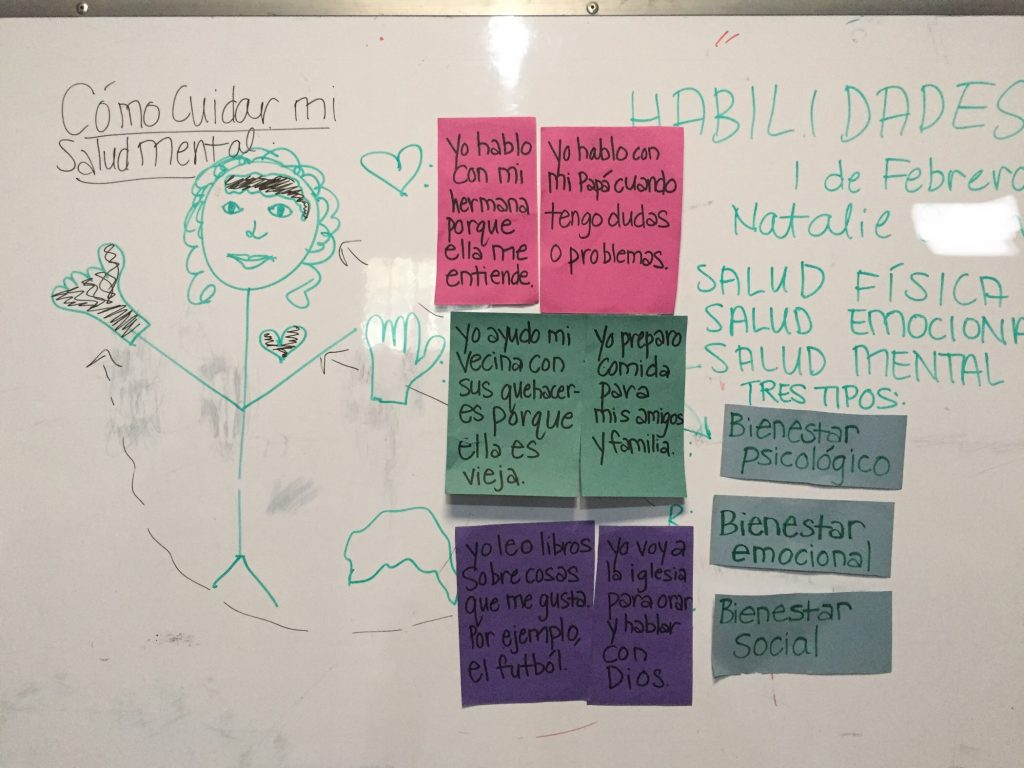 Cómo Cuidar mi
Salud mental
Yo hablo
con mi
hermana
porque
ella me
entiende.
Yo hablo con
mi Papá cuando
tengo dudas
o problemas.
Yo ayudo mi
vecina con
sus quehacer-
es porque
ella es
vieja.
Yo preparo
comida
para
mis amigos
y familia.
yo leo libros
sobre cosas
que me gusta.
Por ejemplo,
el futból.
Yo voy a
la iglesia
para orar
y hablar
con
Dios.
HABILIDADES
1 de Febrero
Natalie
SALUD FÍSICA
SALUD EMOCIONA
SALUD MENTAL
TRES TIPOS:
Bienestar
psicológico
R:
Bienestar
emocional
Bienestar
Social